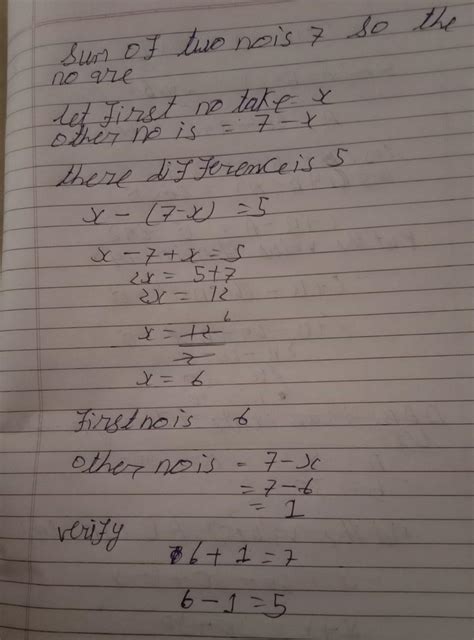 Sum of two no is 7 so the
no are
let first no take x
other no is = 7 - x
there difference is 5
x - (7-x) = 5
x - 7 + x = 5
2x = 5+7
2x = 12
x = 12 6
2
x = 6
First no is 6
other no is = 7 - x
= 7 - 6
= 1
verify
6 + 1 = 7
6 - 1 = 5